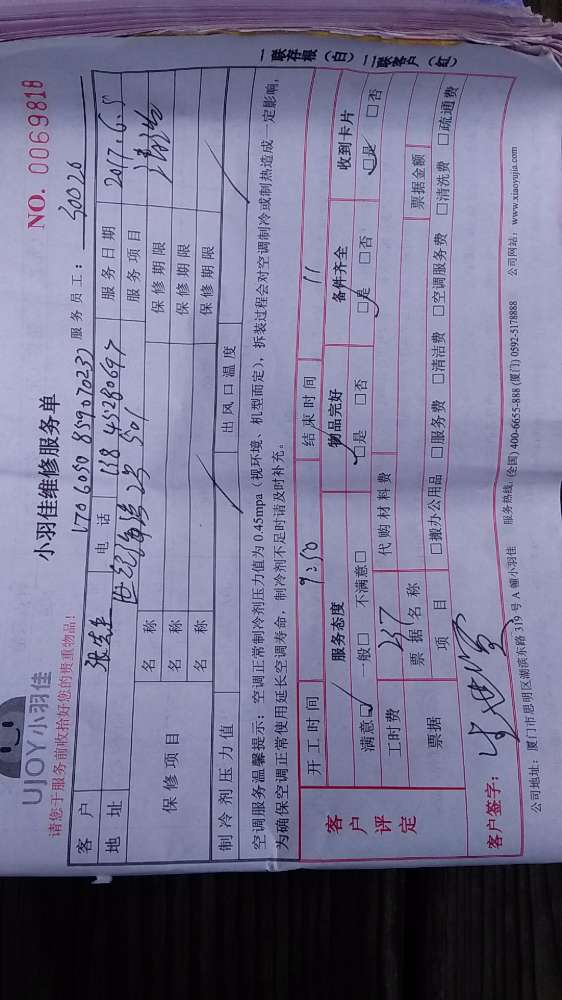 UJOY小羽佳
小羽佳维修服务单
NO. 0069818
请您于服务前收拾好您的贵重物品!
170605085907023) 服务员工: S0026
客户 张先生 电话 118 45280697 服务日期 2017.6.5
地址 23 501 服务项目
保修项目 名称 保修期限
名称 保修期限
名称 保修期限
制冷剂压力值 出风口温度
空调服务温馨提示: 空调正常制冷剂压力值为 0.45mpa (视环境、机型而定), 拆装过程会对空调制冷或制热造成一定影响,
为确保空调正常使用延长空调寿命, 制冷剂不足时请及时补充。
开工时间 9:50 结束时间 11
客户评定 服务态度 物品完好 备件齐全 收到卡片
满意□ 一般□ 不满意□ □是 □否 □是 □否 □是 □否
工时费 237 代购材料费
票据 票据名称 票据金额
项目 □搬办公用品 □服务费 □清洁费 □空调服务费 □清洗费 □疏通费
客户签字:
公司地址: 厦门市思明区湖滨东路 319 号 A 幢小羽佳 服务热线: (全国) 400-6655-888 (厦门) 0592-5178888 公司网站: www.xiaoyujia.com
一联存根 (白) 二联客户 (红)